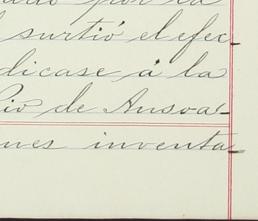 por la
surtió el efec
dicase á la
Pio de Ansoa-
nes inventa